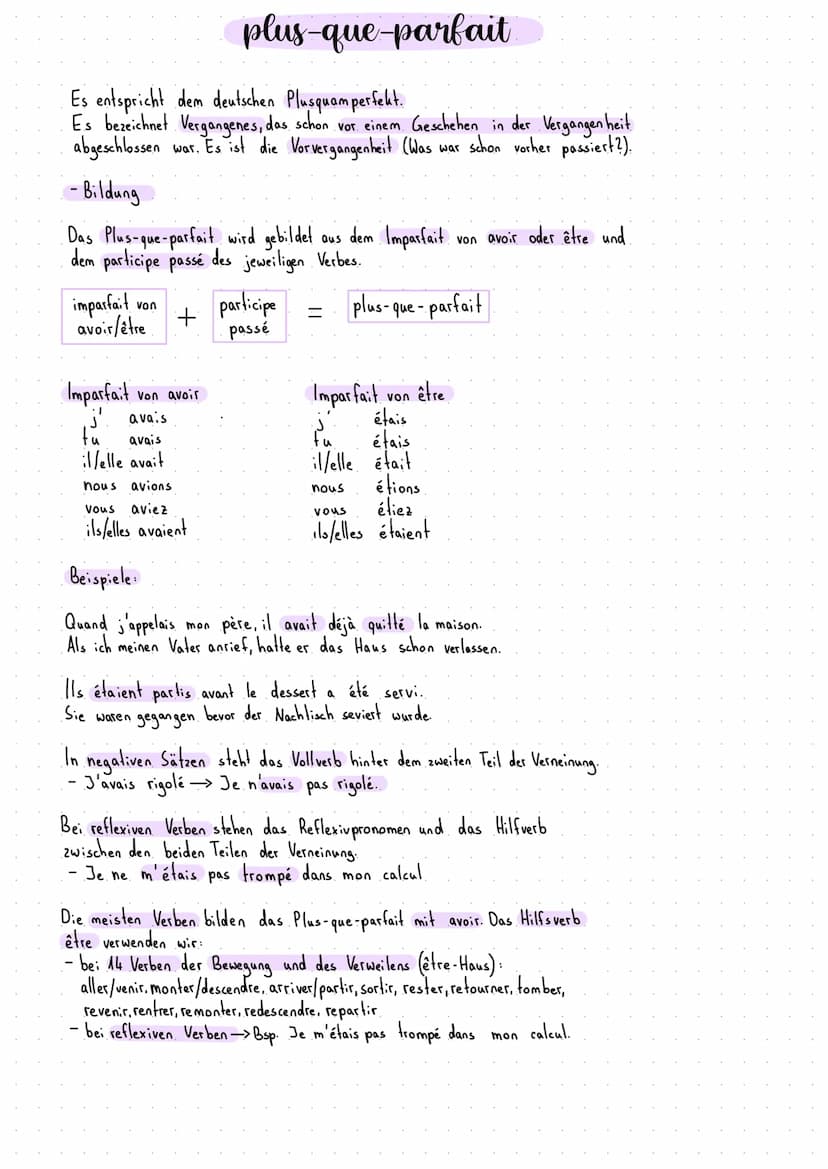 plus-que-parfait
Es entspricht dem deutschen Plusquamperfekt.
Es bezeichnet Vergangenes, das schon vor einem Geschehen in der Vergangenheit
abgeschlossen war. Es ist die Vorvergangenheit (Was war schon vorher passiert?).
- Bildung
Das Plus-que-parfait wird gebildet aus dem Imparfait von avoir oder être und
dem participe passé des jeweiligen Verbes.
imparfait von avoir/être + participe passé = plus-que-parfait
Imparfait von avoir Imparfait von être
j' avais j' étais
tu avais tu étais
il/elle avait il/elle était
nous avions nous étions
vous aviez vous étiez
ils/elles avaient ils/elles étaient
Beispiele:
Quand j'appelais mon père, il avait déjà quitté la maison.
Als ich meinen Vater anrief, hatte er das Haus schon verlassen.
Ils étaient partis avant le dessert a été servi.
Sie waren gegangen bevor der Nachtisch seviert wurde.
In negativen Sätzen steht das Vollverb hinter dem zweiten Teil der Verneinung.
- J'avais rigolé → Je n'avais pas rigolé.
Bei reflexiven Verben stehen das Reflexivpronomen und das Hilfverb
zwischen den beiden Teilen der Verneinung.
- Je ne m'étais pas trompé dans mon calcul
Die meisten Verben bilden das Plus-que-parfait mit avoir. Das Hilfsverb
être verwenden wir:
- bei 14 Verben der Bewegung und des Verweilens (être-Haus):
aller/venir, monter/descendre, arriver/partir, sortir, rester, retourner, tomber,
revenir, rentrer, remonter, redescendre, repartir
- bei reflexiven Verben → Bsp. Je m'étais pas trompé dans mon calcul.